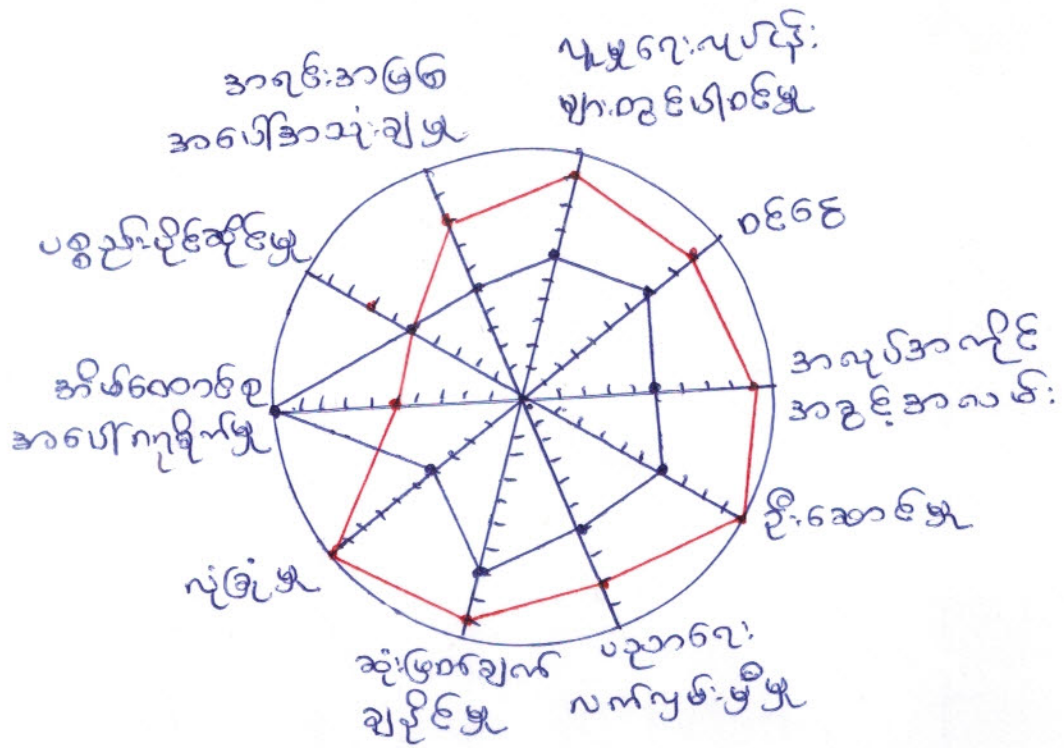 လူမှုရေးလုပ်ငန်း
များတွင်ပါဝင်မှု
ဝင်ငွေ
အလုပ်အကိုင်
အခွင့်အလမ်း
ဦးဆောင်မှု
ပညာရေး
လက်လှမ်းမှီမှု
ဆုံးဖြတ်ချက်
ချနိုင်မှု
လုံခြုံမှု
အိမ်ထောင်စု
အပေါ်ဂရုစိုက်မှု
ပစ္စည်းပိုင်ဆိုင်မှု
အရင်းအမြစ်
အပေါ်အသုံးချမှု